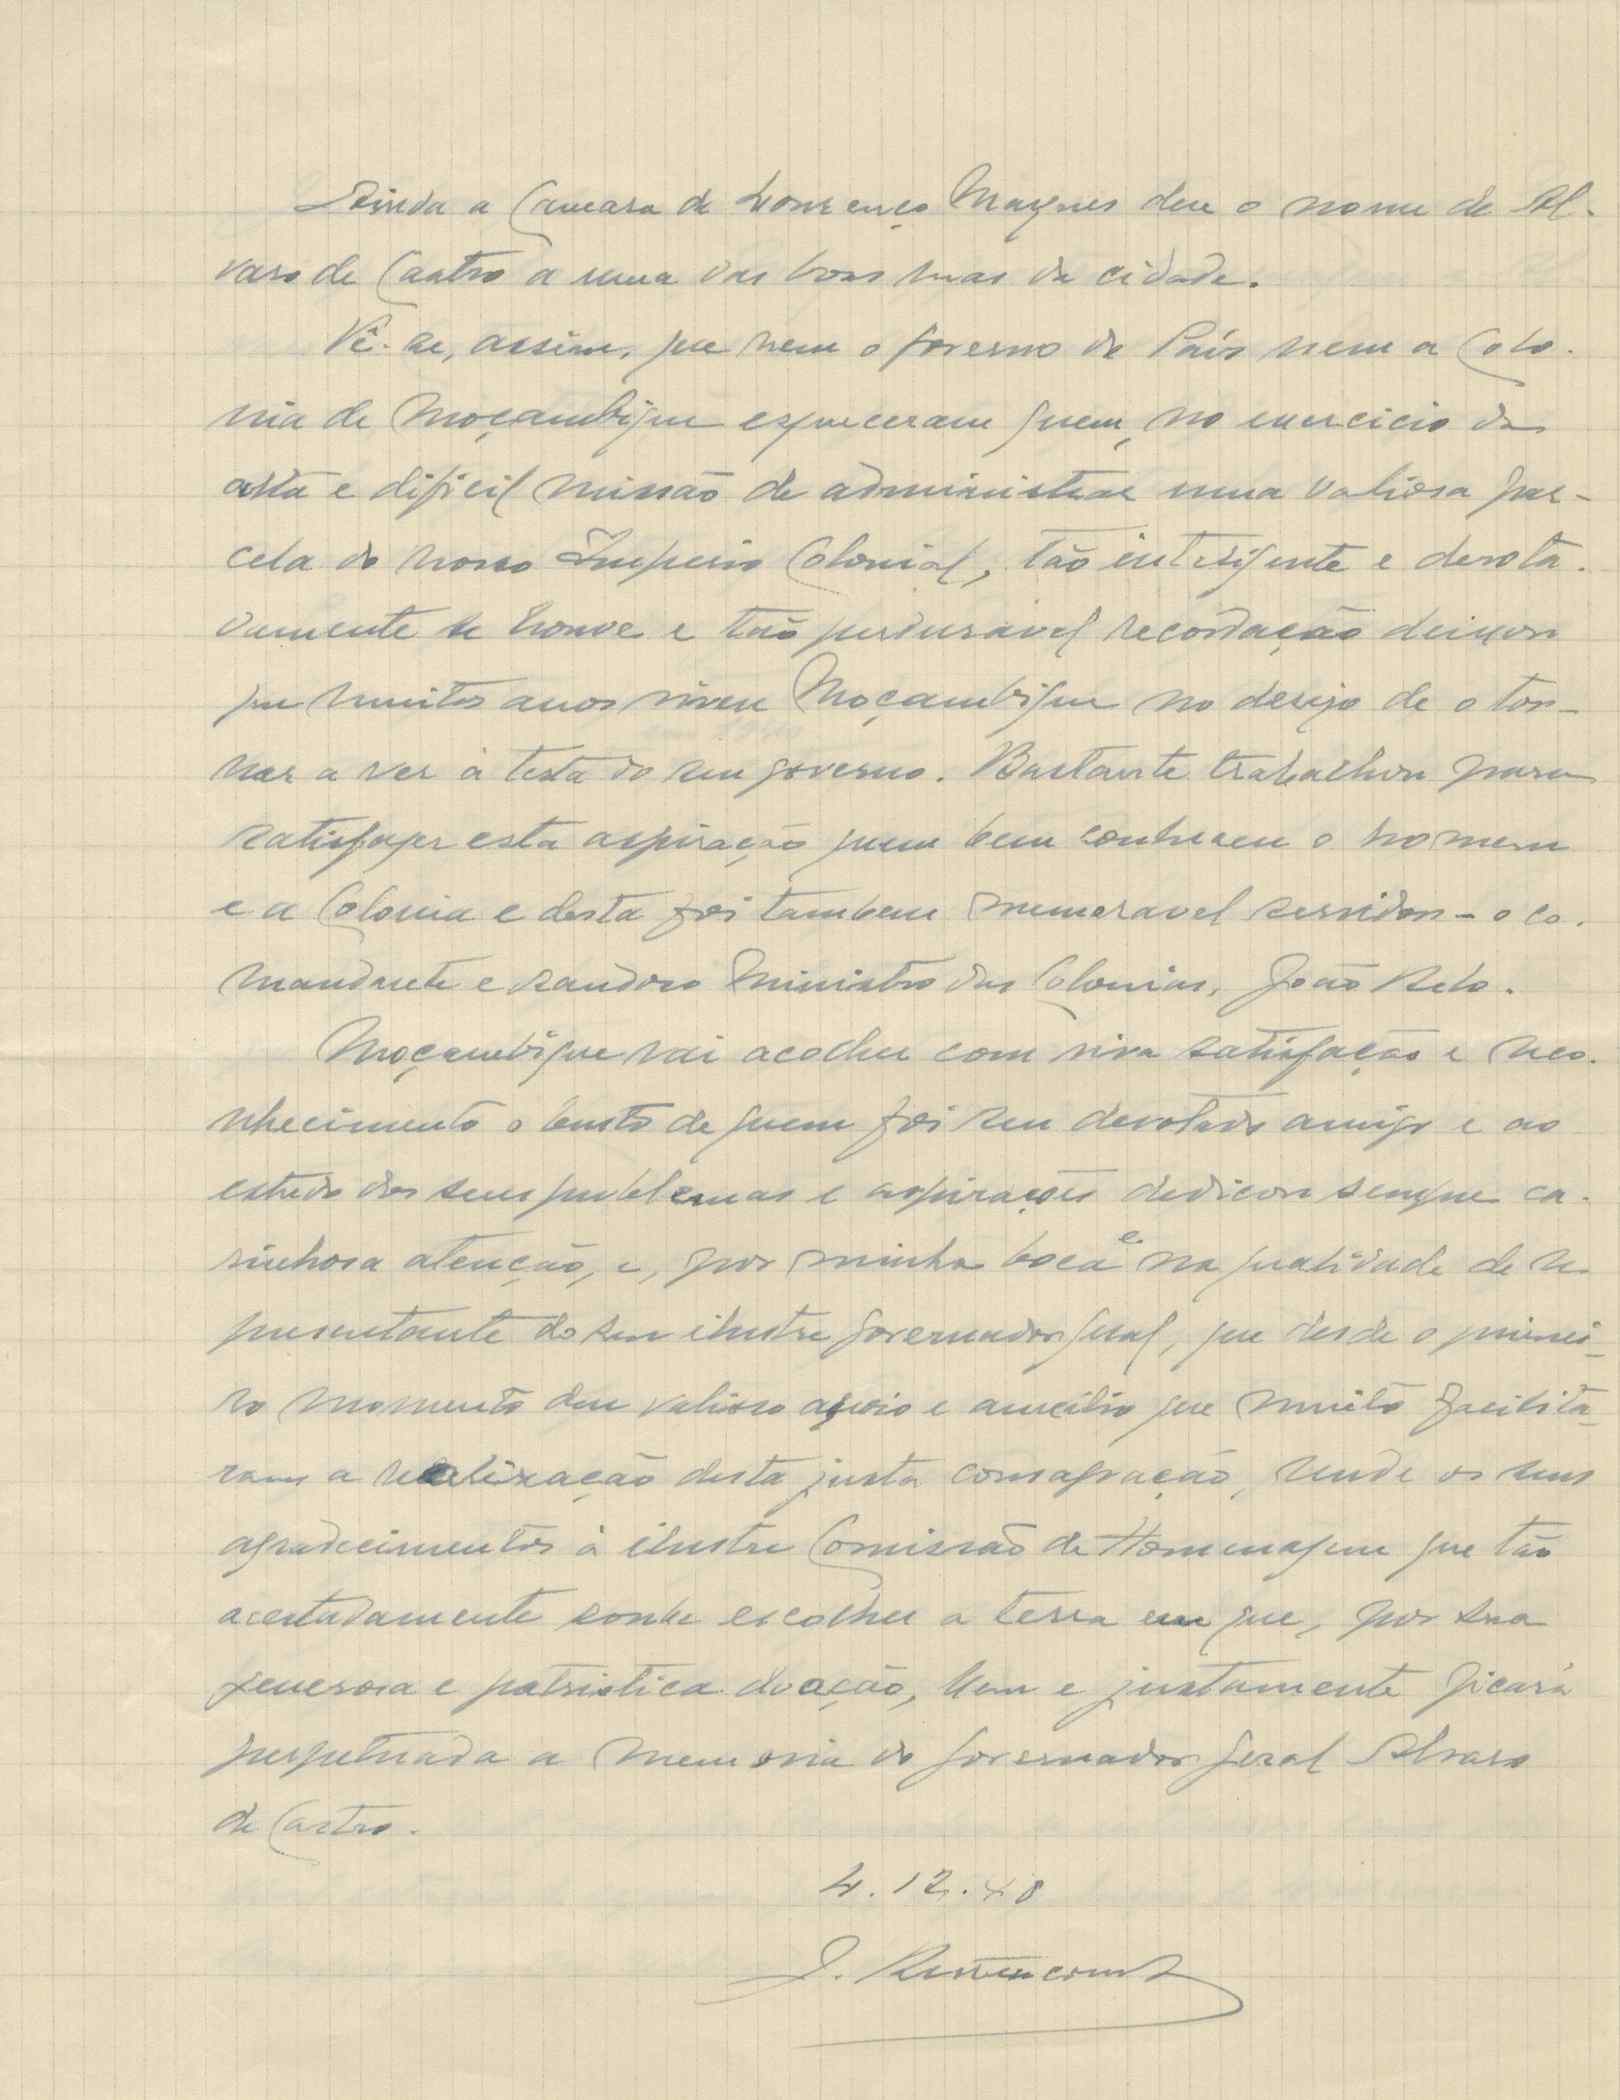 Ainda a Camara de Lourenço Marques deu o nome de Al-
varo de Castro a uma das boas ruas da cidade.
Vê-se, assim, que nem o governo do País nem a Colo-
nia de Moçambique esqueceram quem, no exercicio da
alta e dificil missão de administrar uma valiosa par-
cela do nosso Imperio Colonial, tão inteligente e devota-
damente se houve e tão perduravel recordação deixou
que muitos anos viveu Moçambique no desejo de o tor-
nar a ver à testa do seu governo. Bastante trabalhou para
satisfazer esta aspiração quem bem conheceu o homem
e a Colonia e desta foi tambem memoravel servidor - o co-
mandante e saudoso Ministro das Colonias, João Belo.
Moçambique vai acolher com viva satisfação e reco-
nhecimento o busto de quem foi seu devotado amigo e ao
estudo dos seus problemas e aspirações dedicou sempre ca-
rinhosa atenção, e, por minha boca e na qualidade de re-
presentante do seu ilustre governador geral, que desde o primei-
ro momento deu valioso apoio e auxilio que muito facilita-
ram a realização desta justa consagração, rende os seus
agradecimentos à ilustre Comissão de Homenagem que tão
acertadamente soube escolher a terra em que, por sua
generosa e patriotica doação, bem e justamente ficará
perpetuada a memoria do governador geral Alvaro
de Castro.
4.12.48
J. Bettencourt